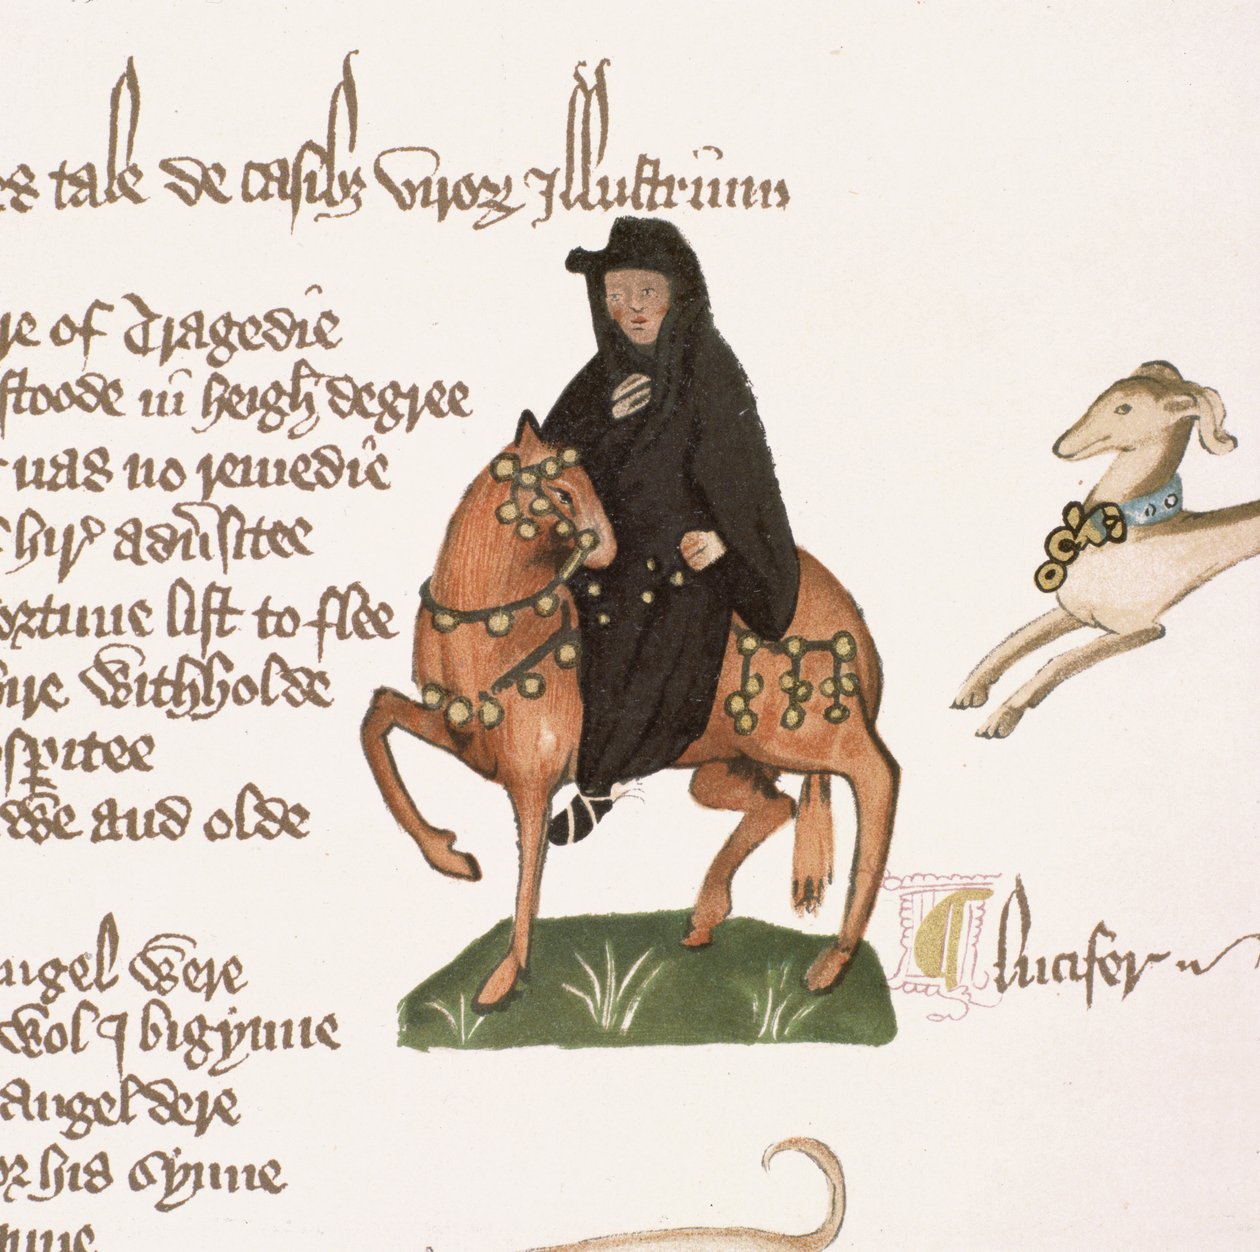 tale de casibȝ viroꝝ Illustriū
of Tragedie
stoode in heigh degree
nas no remedie
hir aduʼsitee
ortune list to flee
withholde
ꝑitee
and olde
angel were
wol I bigynne
angel dere
his synne
¶ lucifer